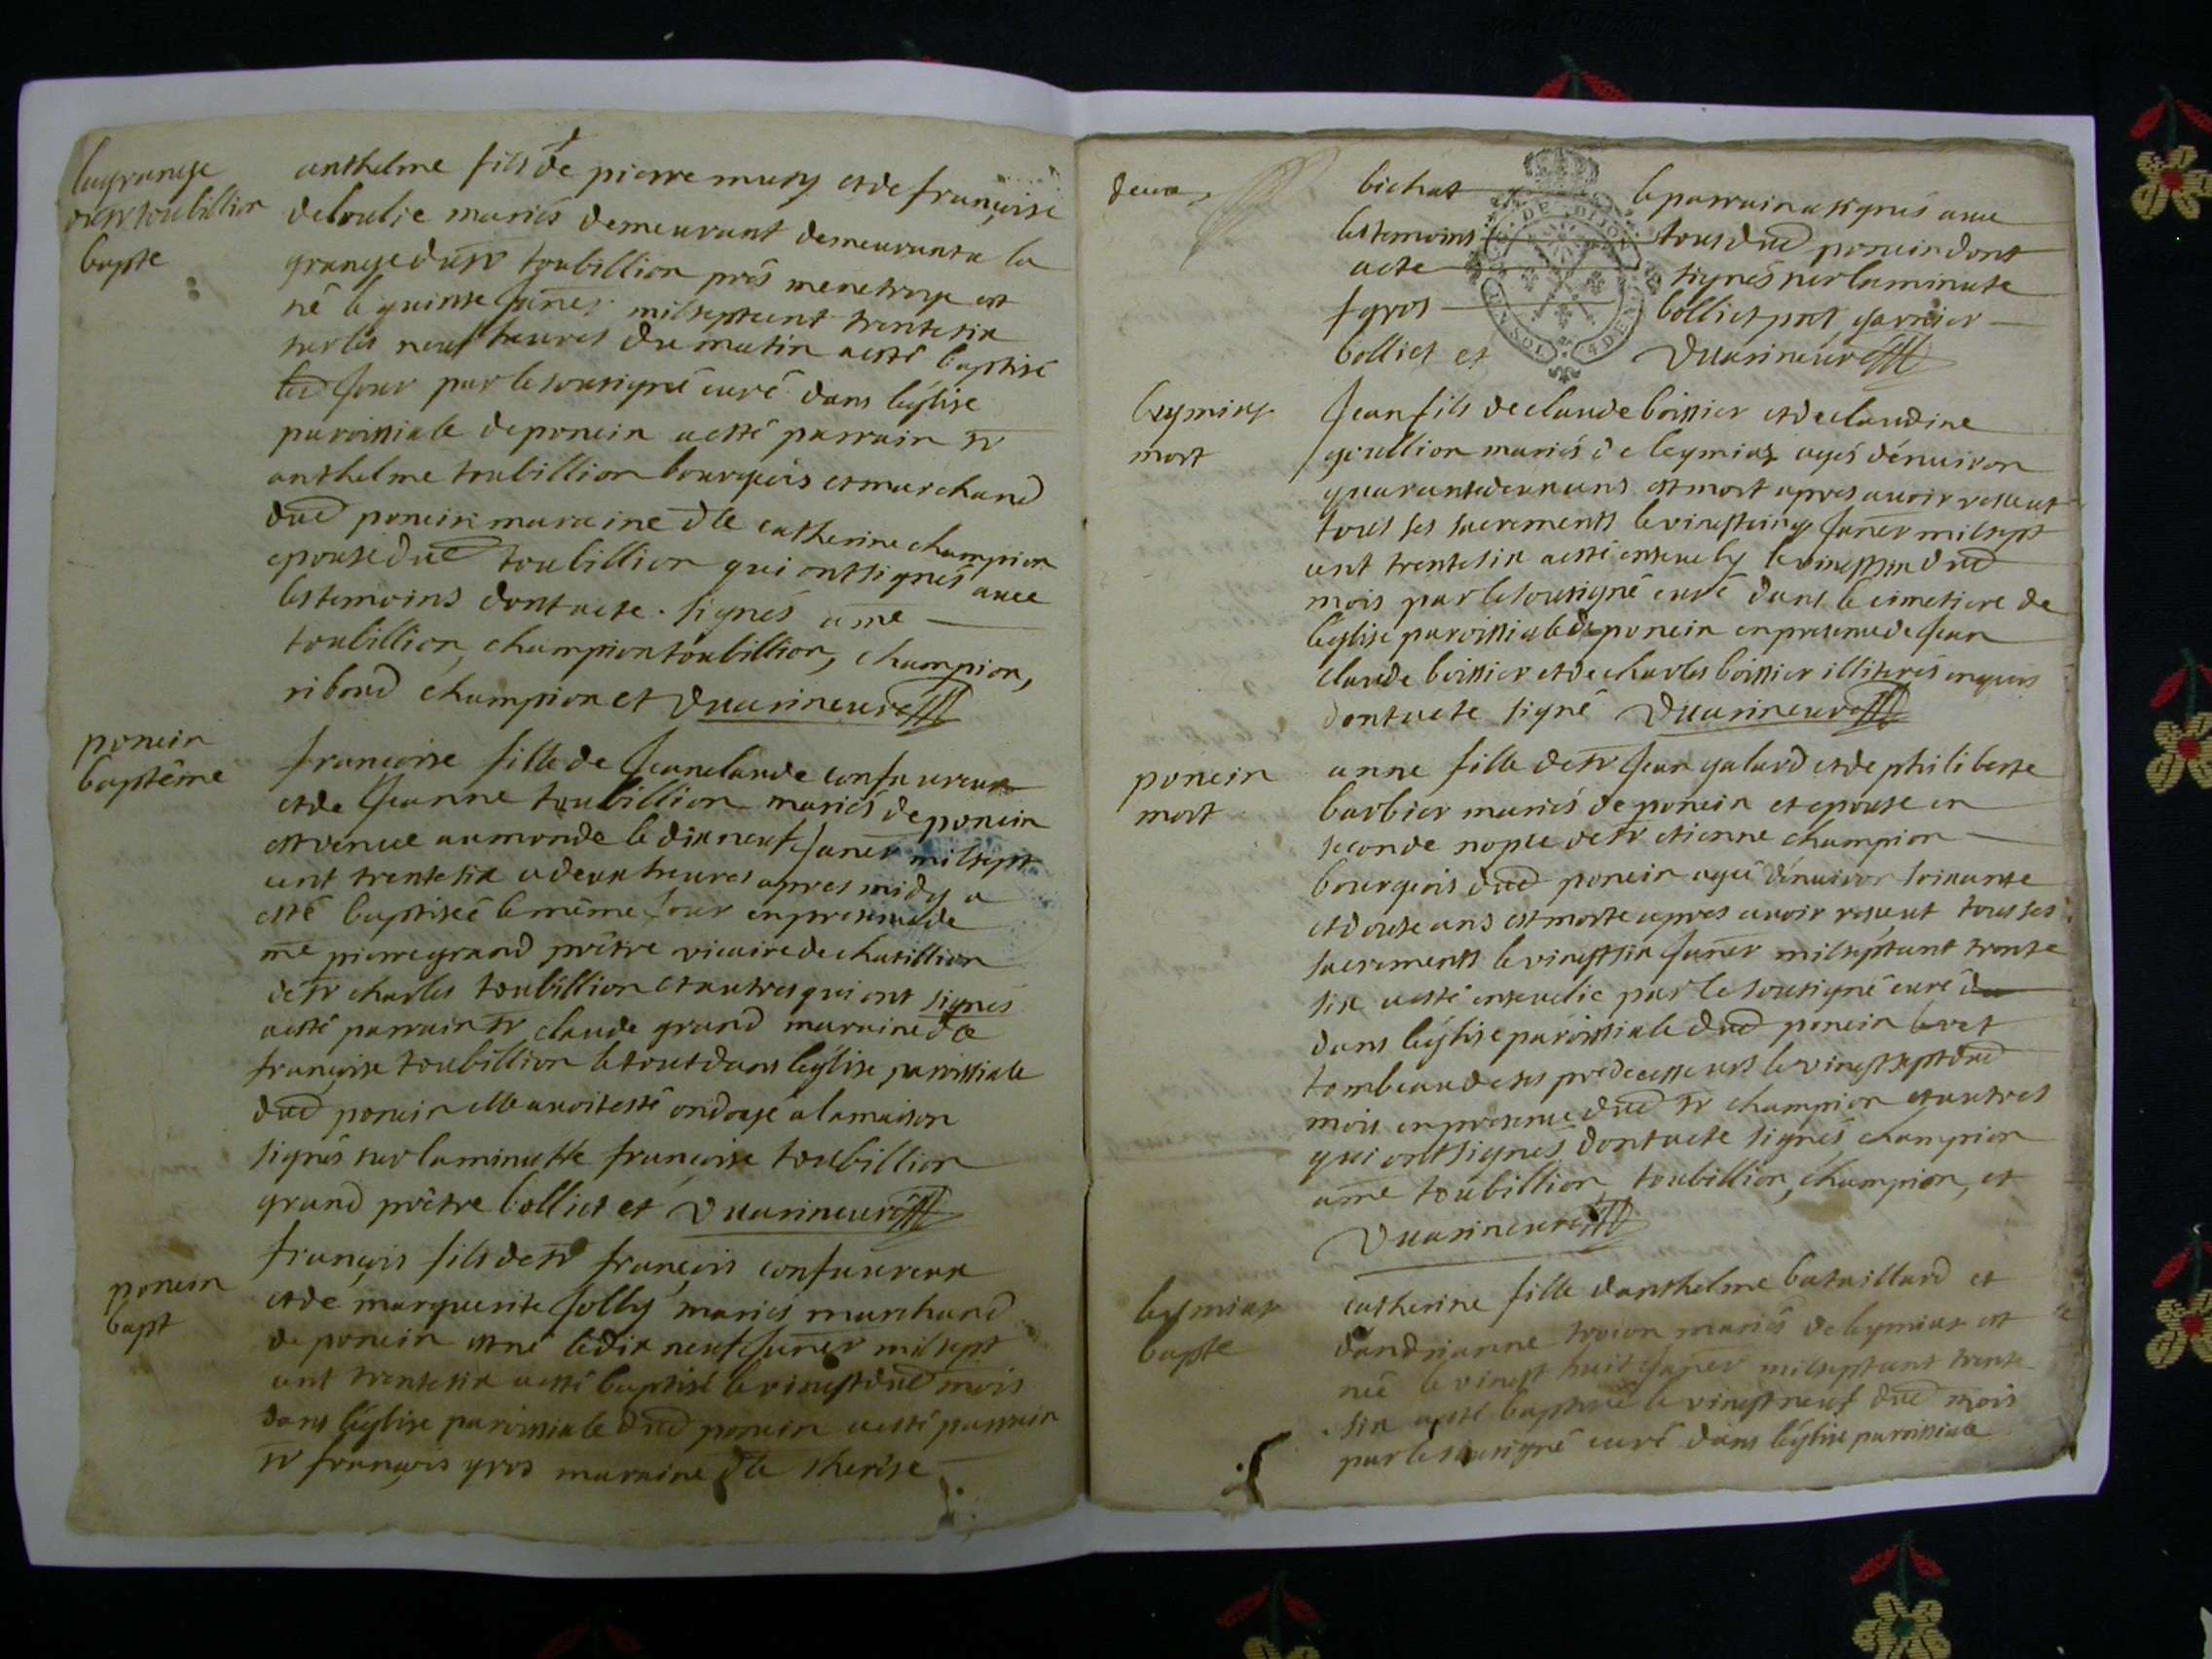 lagrange
du sr toubillion
bapte
anthelme fils de pierre mury et de françoise
deboulie mariés demeurant demeurants la
grange du sr toubillion prés menetruy est
né le quinse janer milseptcent trentesix
sur les neuf heures du matin a esté baptisé
led jour par le sousigné curé dans leglise
paroissiale de poncin a esté parrain sr
anthelme toubillion bourgeois et marchand
dud poncin maraine dlle catherine champion
epouse dud toubillion qui ont signés avec
les temoins dont acte. signés ame
toubillion, champion toubillion, champion,
riboud champion et Duarin curé
poncin
baptême
françoise fille de jean claude confavreux
et de jeanne toubillion mariés de poncin
est venue au monde le dix neuf janer milsept
cent trentesix a deux heures apres midy a
esté baptiseé le même jour en presence de
me pierre grand prêtre vicaire de chatillion
de sr charles toubillion et autres qui ont signés
a esté parrain sr claude grand maraine dlle
françoise toubillion le tout dans leglise paroissiale
dud poncin elle avoit esté ondoyé a la maison
signés sur la minutte françoise toubillion
grand prêtre bolliet et Duarin curé
poncin
bapt
françois fils de sr françois confavreux
et de marguerite jolly mariés marchand
de poncin est né le dix neuf janer milsept
cent trentesix a esté baptisé le vingt dud mois
dans leglise paroissiale dud poncin a esté parrain
sr françois gros maraine dlle therese
deux
bichat le parrain a signés avec
les temoins tous dud poncin dont
acte signés sur la minute
f gros bolliet pnt garnier
bolliet et Duarin curé
DE DIJON
4 DEN
leymiaz
mort
jean fils de claude boissier et de claudine
goullion mariés de leymiaz agés dénuiron
quarante deux ans est mort apres avoir reseut
tous ses sacrements le vingtcinq janer milsept
cent trentesix a esté ensevely le vingtsix dud
mois par le sousigné curé dans le cimetiere de
leglise paroissiale de poncin en presence de jean
claude boissier et de charles boissier illiterés enquis
dont acte signé Duarin curé
poncin
mort
anne fille de sr jean galard et de philiberte
barbier mariés de poncin et epouse en
seconde nopce de sr etienne champion
bourgeois dud poncin ageé dénuiron soixante
et douse ans est morte apres avoir reseut tous ses
sacrements le vingtsix janer milseptcent trente
six a esté ensevelie par le sousigné curé du
dans leglise paroissiale dud poncin
tombeau de ses predecesseurs le vingt sept dud
mois en presence dud sr champion et autres
qui ont signés dont acte signés champion
ame toubillion, toubillion, champion, et
Duarin curé
leymiaz
bapte
catherine fille danthelme bataillard et
dandrianne mariés de leymiaz est
née le vingt huit janer milseptcent trente
six a esté baptisé le vingt neuf dud mois
par le sousigné curé dans leglise paroissiale